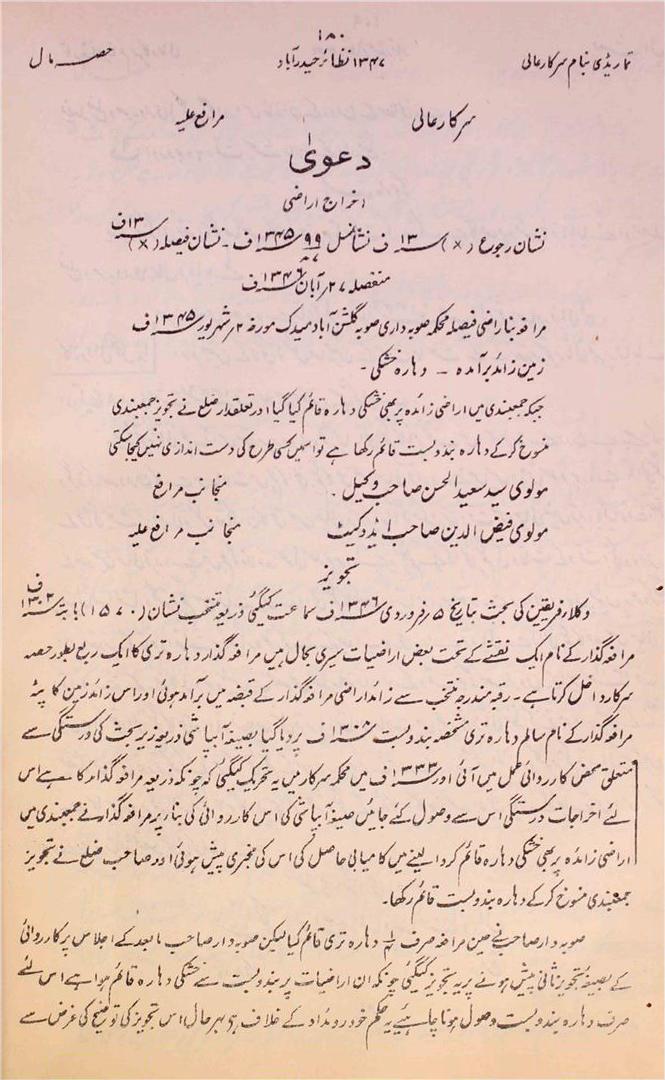 ۱۸۰
تماریڈی بنام سرکار عالی ۱۳۴۷ نظائر حیدرآباد حصہ مال
سرکار عالی مرافع علیہ
دعویٰ
اخراج اراضی
نشان رجوع (×) ۱۳ ف نشانسل ۹۹ ۱۳۴۵ ف۔ نشان فیصلہ (×) ۱۳ ف
منفصلہ ۲۷ر آبان ۱۳۴۶ ف
مرافعہ بناراضی فیصلہ محکمہ صوبہ داری صوبہ گلشن آباد میدک مورخہ ۲ر شہریور ۱۳۴۵ ف
زمین زائد برآمدہ ۔ دہارہ خشکی۔
جبکہ جمعبندی میں اراضی زائدہ پر بھی خشکی دہارہ قائم کیا گیا اور تعلقدار ضلع نے تجویز جمعبندی
منسوخ کر کے دہارہ بندوبست قائم رکھا ہے تو اسمیں کسی طرح کی دست اندازی نہیں کیجاسکتی
مولوی سید سعید الحسن صاحب وکیل۔ منجانب مرافع
مولوی فیض الدین صاحب ایڈوکیٹ منجانب مرافع علیہ
تجویز
وکلاء فریقین کی بحث بتاریخ ۵ر فروردی ۱۳۴۶ ف سماعت کیگئی ذریعہ منتخب نشان (۱۵۷۰) بابتہ ۱۳۰۲ ف
مرافعہ گذار کے نام ایک نقشے کے تحت بعض اراضیات سیری بحال ہیں مرافعہ گذار دہارہ تری کا ایک ربع بطور حصہ
سرکار داخل کرتا ہے۔ رقبہ مندرجہ منتخب سے زائد اراضی مرافعہ گذار کے قبضہ میں برآمد ہوئی اور اس زائد زمین کا پٹہ
مرافعہ گذار کے نام سالم دہارہ تری مشخصہ بندوبست ۱۳۰۸ ف پر دیا گیا بصیغہ آبپاشی ذریعہ زیر بحث کی درستگی سے
متعلق محض کارروائی عمل میں آئی اور ۱۳۳۳ ف میں محکمہ سرکار میں یہ تحریک کیگئی کہ چونکہ ذریعہ مرافعہ گذار کا ہے اس
لئے اخراجات درستگی اس سے وصول کئے جائیں صیغہ آبپاشی کی اس کارروائی کی بناء پر مرافعہ گذار نے جمعبندی میں
اراضی زائدہ پر بھی خشکی دہارہ قائم کروا لینے میں کامیابی حاصل کی اس کی مخبری پیش ہوئی اور صاحب ضلع نے تجویز
جمعبندی منسوخ کر کے دہارہ بندوبست قائم رکھا۔
صوبہ دار صاحب نے حین مرافعہ صرف ¼ دہارہ تری قائم کیا لیکن صوبہ دار صاحب مابعد کے اجلاس پر کارروائی
کے بصیغہ تجویز ثانی پیش ہونے پر یہ تجویز کیگئی چونکہ ان اراضیات پر بندوبست سے خشکی دہارہ قائم ہوا ہے اس لئے
صرف دہارہ بندوبست وصول ہونا چاہیے یہ حکم خود روئداد کے خلاف ہے بہرحال اس تجویز کی توضیح کی غرض سے